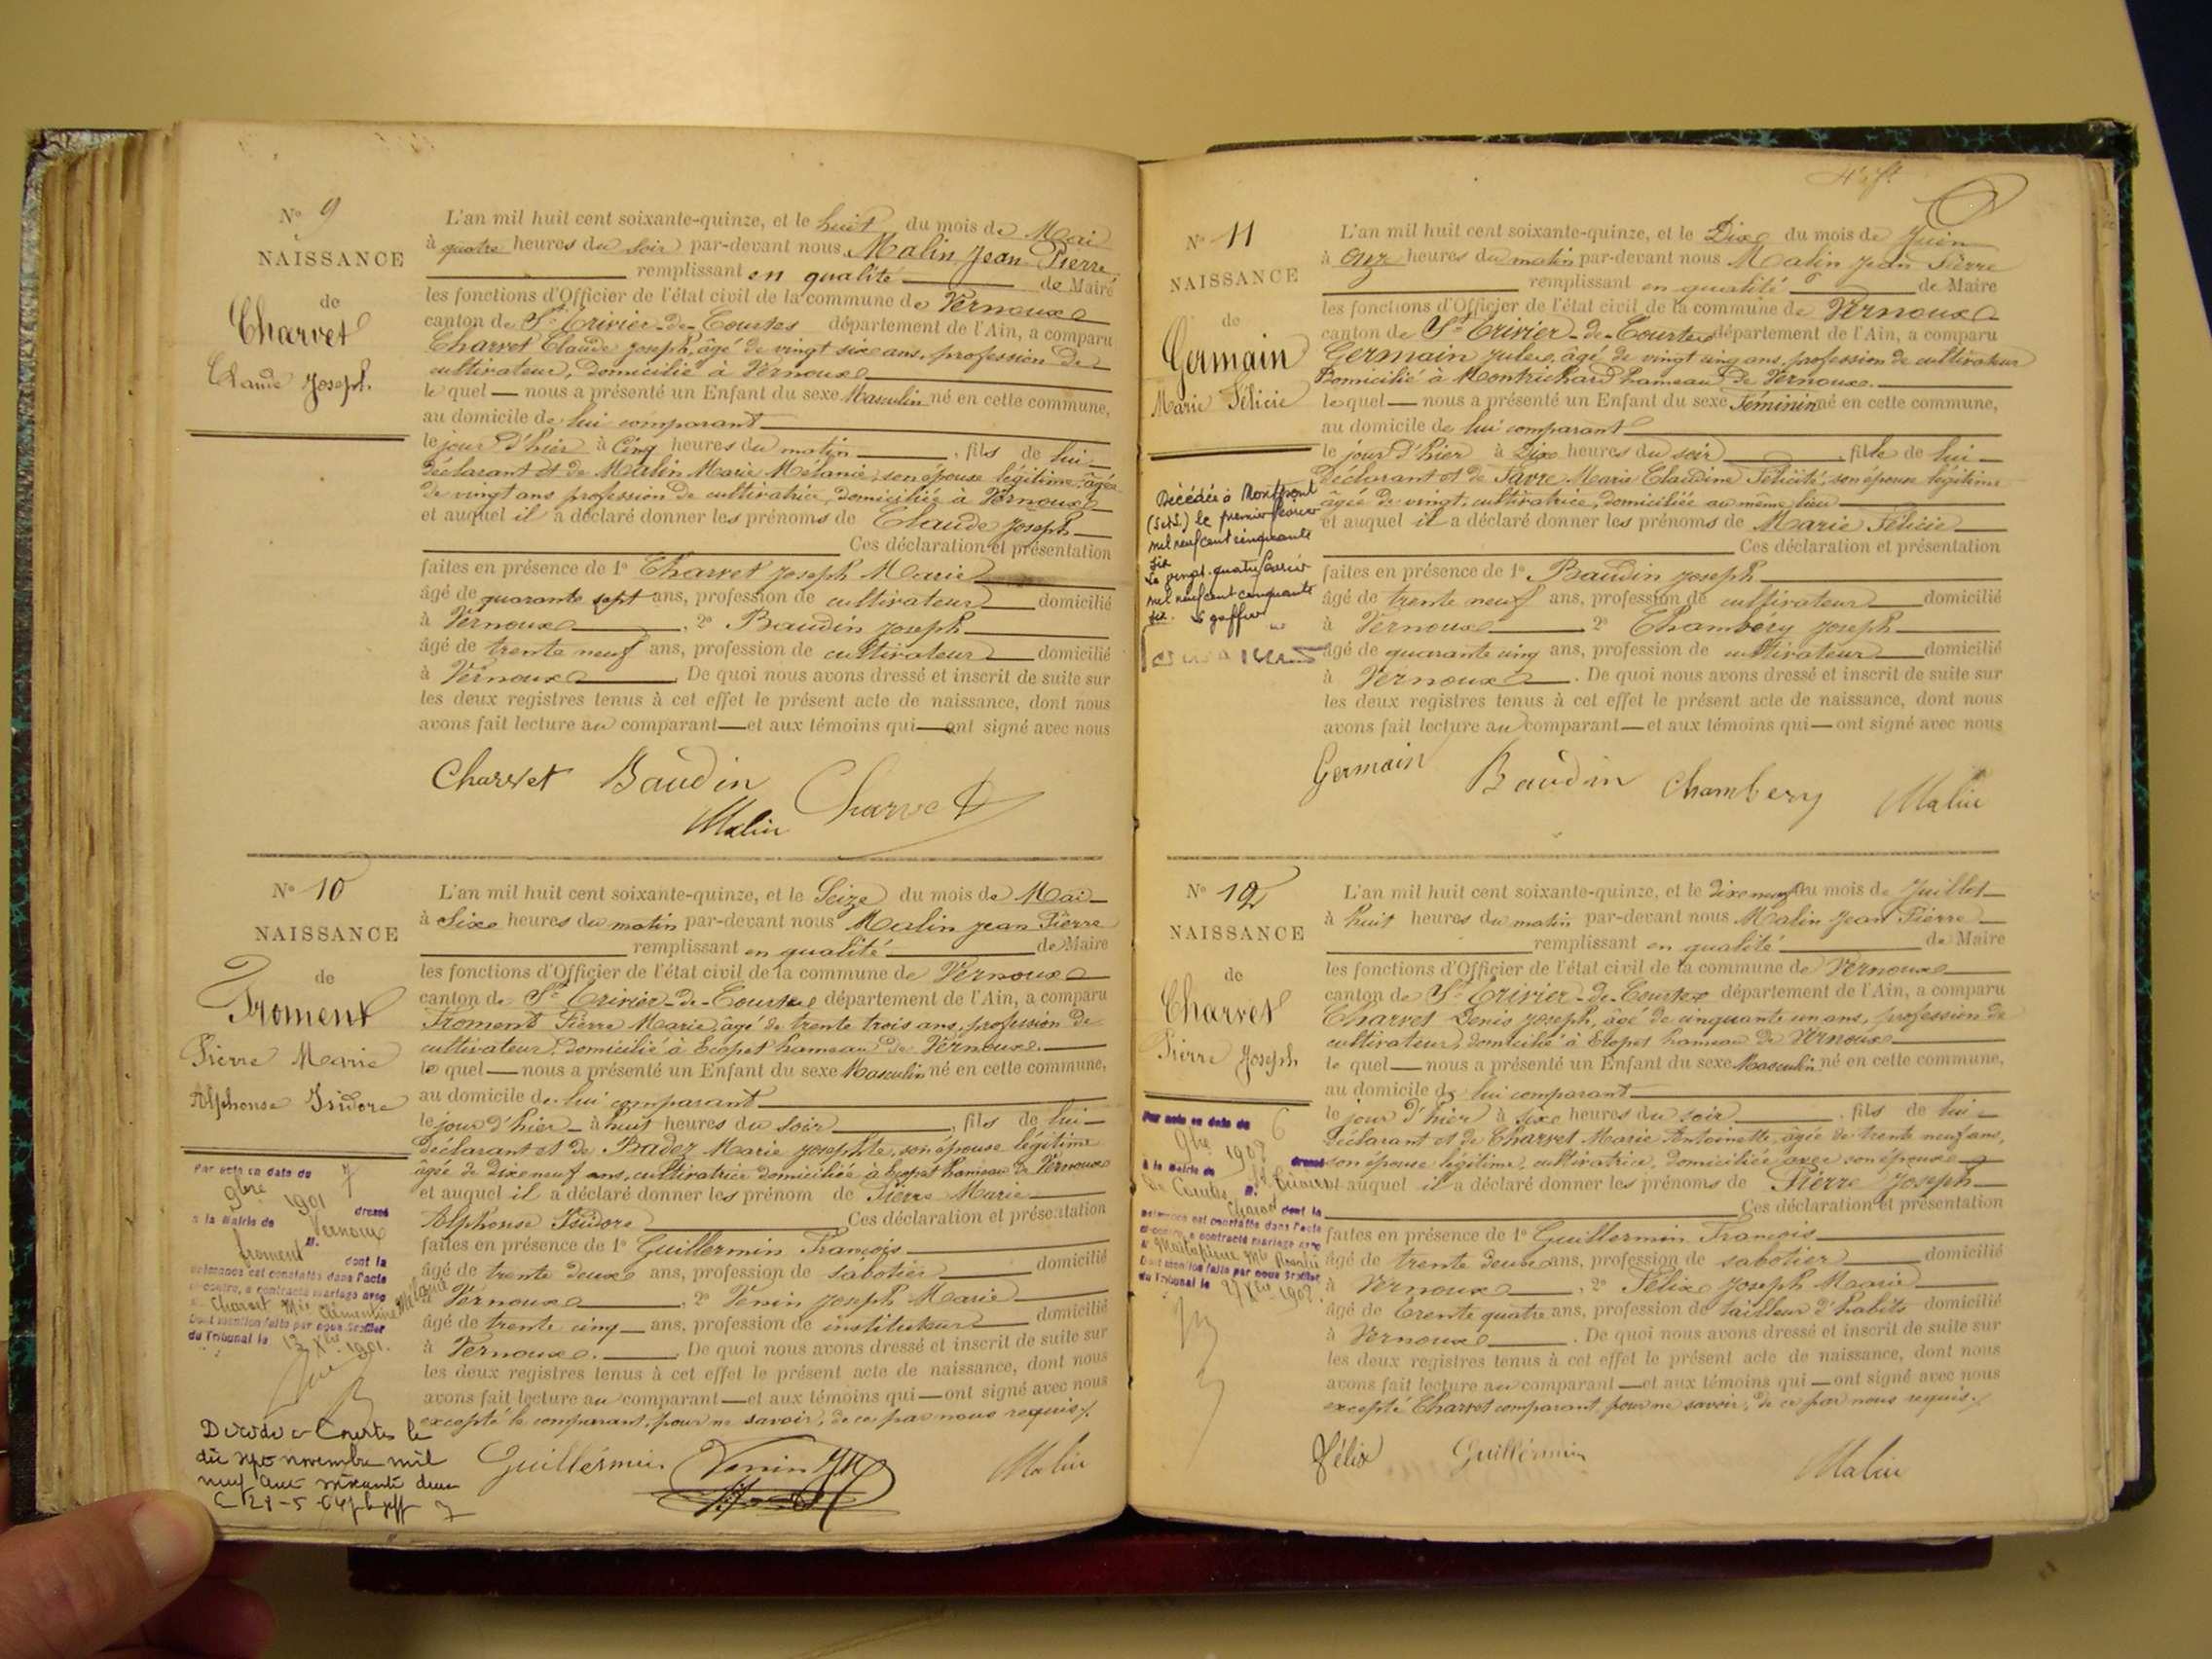 N° 9
NAISSANCE
de
Charvet
Claude Joseph.
L'an mil huit cent soixante-quinze, et le huit du mois de Mai
à quatre heures du soir par-devant nous Malin Jean Pierre
remplissant en qualité de Maire
les fonctions d'Officier de l'état civil de la commune de Vernoux
canton de St Trivier-de-Courtes département de l'Ain, a comparu
Charvet Claude Joseph, âgé de vingt six ans, profession de
cultivateur, domicilié à Vernoux
lequel — nous a présenté un Enfant du sexe Masculin né en cette commune,
au domicile de lui comparant
le jour d'hier à Cinq heures du matin, fils de lui
déclarant et de Malin Marie Mélanie, son épouse légitime, âgée
de vingt ans profession de cultivatrice, domiciliée à Vernoux
et auquel il a déclaré donner les prénoms de Claude Joseph
Ces déclaration et présentation
faites en présence de 1° Charvet Joseph Marie
âgé de quarante sept ans, profession de cultivateur domicilié
à Vernoux, 2° Baudin Joseph
âgé de trente neuf ans, profession de cultivateur domicilié
à Vernoux. De quoi nous avons dressé et inscrit de suite sur
les deux registres tenus à cet effet le présent acte de naissance, dont nous
avons fait lecture au comparant — et aux témoins qui — ont signé avec nous
Charvet Baudin Charvet
Malin
N° 10
NAISSANCE
de
Froment
Pierre Marie
Alphonse Isidore
Par acte en date du 7
9bre 1901 dressé
à la Mairie de Vernoux
M. froment dont la
naissance est constatée dans l'acte
ci-contre, a contracté mariage avec
Charvet Mie Clémentine Mélanie
Dont mention faite par nous Greffier
du Tribunal le 13 Xbre 1901.
Décédé à Courtes le
dix sept novembre mil
neuf cent soixante deux
L'an mil huit cent soixante-quinze, et le Seize du mois de Mai
à Six heures du matin par-devant nous Malin Jean Pierre
remplissant en qualité de Maire
les fonctions d'Officier de l'état civil de la commune de Vernoux
canton de St Trivier-de-Courtes département de l'Ain, a comparu
Froment Pierre Marie, âgé de trente trois ans, profession de
cultivateur, domicilié à Ecopet hameau de Vernoux.
lequel — nous a présenté un Enfant du sexe Masculin né en cette commune,
au domicile de lui comparant
le jour d'hier à huit heures du soir, fils de lui
déclarant et de Badez Marie Josephte, son épouse légitime
âgée de dix neuf ans, cultivatrice domiciliée à Ecopet hameau de Vernoux
et auquel il a déclaré donner les prénom de Pierre Marie
Alphonse Isidore Ces déclaration et présentation
faites en présence de 1° Guillermin François
âgé de trente deux ans, profession de sabotier domicilié
à Vernoux, 2° Venin Joseph Marie
âgé de trente cinq ans, profession de instituteur domicilié
à Vernoux. De quoi nous avons dressé et inscrit de suite sur
les deux registres tenus à cet effet le présent acte de naissance, dont nous
avons fait lecture au comparant — et aux témoins qui — ont signé avec nous
excepté le comparant, pour ne savoir, de ce par nous requis.
Guillermin Venin Malin
N° 11
NAISSANCE
de
Germain
Marie Félicie
Décédée à Montpont
(S et L) le premier février
mil neuf cent cinquante
six
Le vingt-quatre février
mil neuf cent cinquante
six. Le greffier
L'an mil huit cent soixante-quinze, et le Dix du mois de Juin
à Onze heures du matin par-devant nous Malin Jean Pierre
remplissant en qualité de Maire
les fonctions d'Officier de l'état civil de la commune de Vernoux
canton de St Trivier-de-Courtes département de l'Ain, a comparu
Germain Jules, âgé de vingt cinq ans, profession de cultivateur
Domicilié à Montrichard hameau de Vernoux.
lequel — nous a présenté un Enfant du sexe Féminin né en cette commune,
au domicile de lui comparant
le jour d'hier à Dix heures du soir, fille de lui
déclarant et de Favre Marie Claudine Félicité, son épouse légitime
âgée de vingt, cultivatrice, domiciliée au même lieu
et auquel il a déclaré donner les prénoms de Marie Félicie
Ces déclaration et présentation
faites en présence de 1° Baudin Joseph
âgé de trente neuf ans, profession de cultivateur domicilié
à Vernoux 2° Chambéry Joseph
âgé de quarante cinq ans, profession de cultivateur domicilié
à Vernoux. De quoi nous avons dressé et inscrit de suite sur
les deux registres tenus à cet effet le présent acte de naissance, dont nous
avons fait lecture au comparant — et aux témoins qui — ont signé avec nous
Germain Baudin Chambery Malin
N° 12
NAISSANCE
de
Charvet
Pierre Joseph
Par acte en date du 6
9bre 1902 dressé
à la Mairie de St Trivier
de Courtes M. Charvet dont la
naissance est constatée dans l'acte
ci-contre, a contracté mariage avec
Dont mention faite par nous Greffier
du Tribunal le 27 Xbre 1902.
L'an mil huit cent soixante-quinze, et le dix neuf du mois de Juillet
à huit heures du matin par-devant nous Malin Jean Pierre
remplissant en qualité de Maire
les fonctions d'Officier de l'état civil de la commune de Vernoux
canton de St Trivier-de-Courtes département de l'Ain, a comparu
Charvet Denis Joseph, âgé de cinquante un ans, profession de
cultivateur, domicilié à Ecopet hameau de Vernoux
lequel — nous a présenté un Enfant du sexe Masculin né en cette commune,
au domicile de lui comparant
le jour d'hier à six heures du soir, fils de lui
déclarant et de Charvet Marie Antoinette, âgée de trente neuf ans,
son épouse légitime, cultivatrice, domiciliée avec son époux
et auquel il a déclaré donner les prénoms de Pierre Joseph
Ces déclaration et présentation
faites en présence de 1° Guillermin François
âgé de trente deux ans, profession de sabotier domicilié
à Vernoux, 2° Félix Joseph Marie
âgé de trente quatre ans, profession de tailleur d'habits domicilié
à Vernoux. De quoi nous avons dressé et inscrit de suite sur
les deux registres tenus à cet effet le présent acte de naissance, dont nous
avons fait lecture au comparant — et aux témoins qui — ont signé avec nous
excepté Charvet comparant, pour ne savoir, de ce par nous requis.
Félix Guillermin Malin